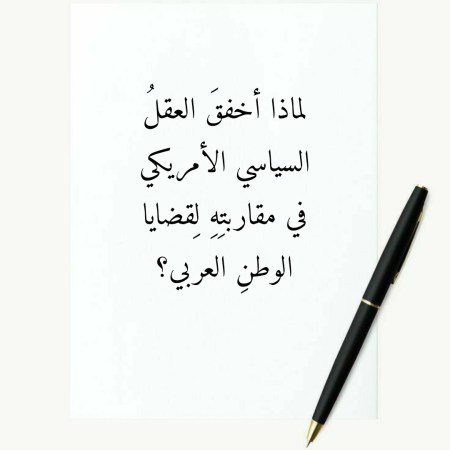 لماذا أخفقَ العقلُ
السياسي الأمريكي
في مقاربتِهِ لِقضايا
الوطنِ العربي؟